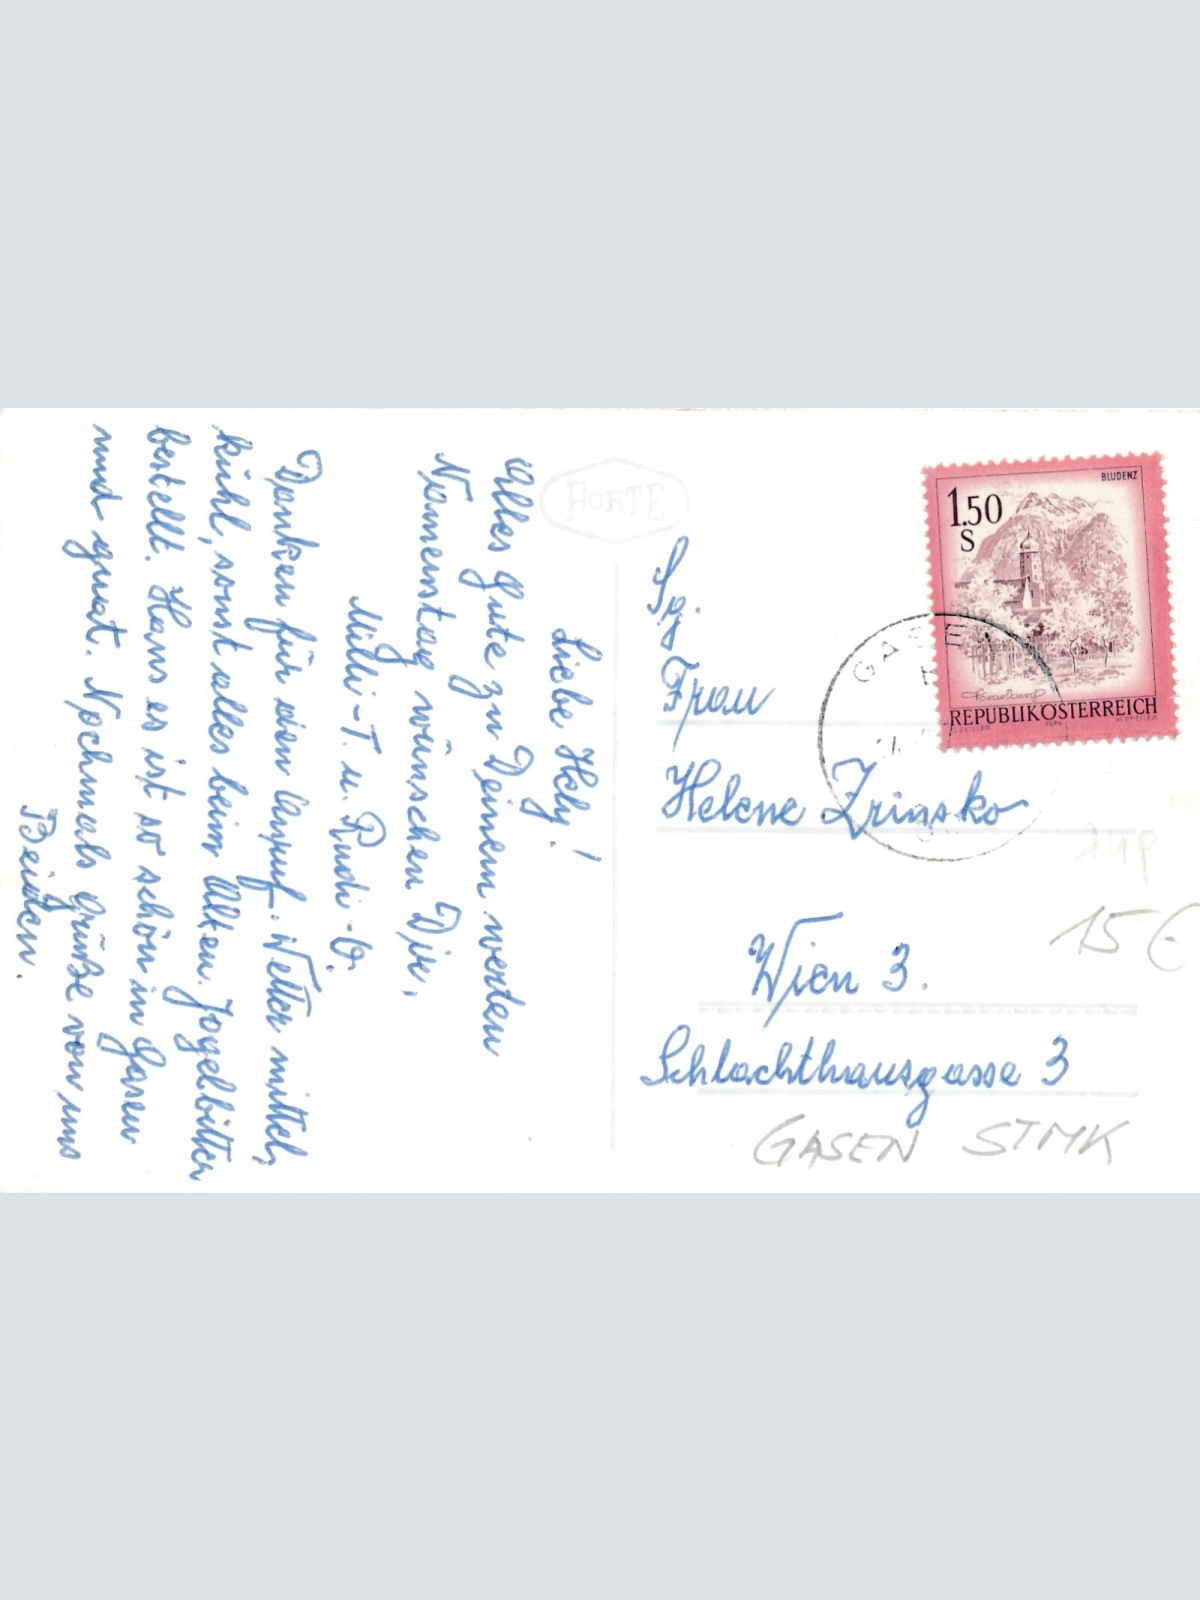 Liebe Hely!
Alles Gute zu Deinem werten
Namenstag wünschen Dir,
Milli-T. u. Rudi-O.
Danken für den Anruf. Wetter mittel,
kühl, sonst alles beim Alten. Jogelbitter
bestellt. Hans es ist so schön in Gasen
und guat. Nochmals Grüße von uns
Beiden.
PORTE
BLUDENZ
1.50
S
Vorarlberg
REPUBLIK ÖSTERREICH
GASEN
Sg.
Frau
Helene Zrinsko
Wien 3.
Schlachthausgasse 3
15 €
GASEN STMK